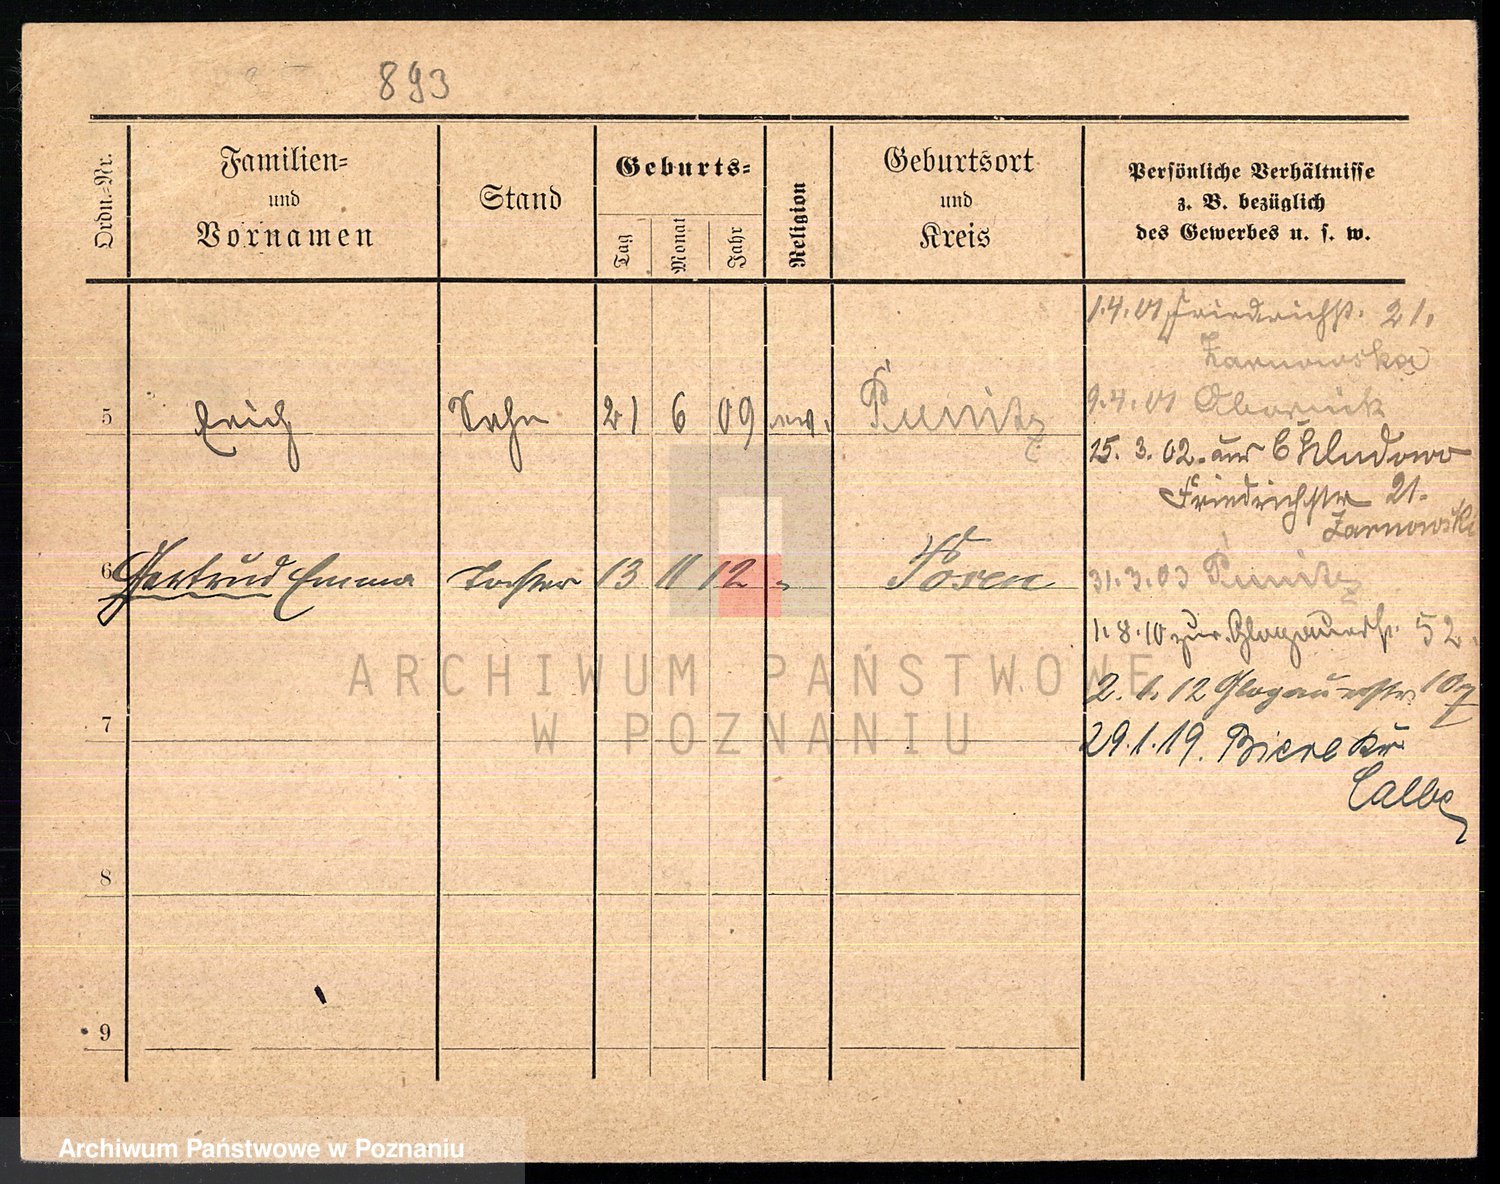 893
Ordn.-Nr.
Familien-
und
Vornamen
Stand
Geburts-
Tag
Monat
Jahr
Religion
Geburtsort
und
Kreis
Persönliche Verhältnisse
z. B. bezüglich
des Gewerbes u. s. w.
5 Erich Sohn 21 6 09 ev. Punitz
6 Gertrud Emma Tochter 13 11 12 " Posen
7
8
9
1.4.01 Friedrichst. 21.
Zarnowska
9.4.01 Obornick
15. 3. 02. aus Chludowo
Friedrichstr 21.
Zarnowski
31.3.03 Punitz
1.8.10 zur. Glogauerst. 52.
2. 1. 12 Glogauerstr. 107
29.1.19. Biere Kr
Calbe
ARCHIWUM PAŃSTWOWE
W POZNANIU
Archiwum Państwowe w Poznaniu